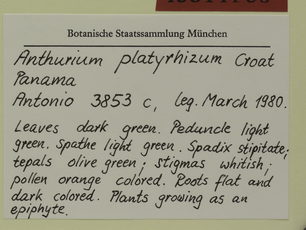 Botanische Staatssammlung München
Anthurium platyrhizum Croat
Panama
Antonio 3853 c, leg. March 1980.
Leaves dark green. Peduncle light
green. Spathe light green. Spadix stipitate;
tepals olive green; stigmas whitish;
pollen orange colored. Roots flat and
dark colored. Plants growing as an
epiphyte.